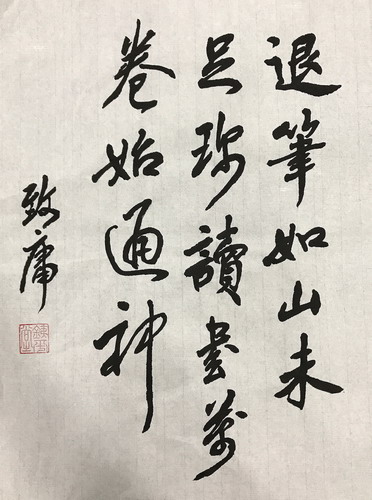 退筆如山未
足珍讀書萬
卷始通神
致庸